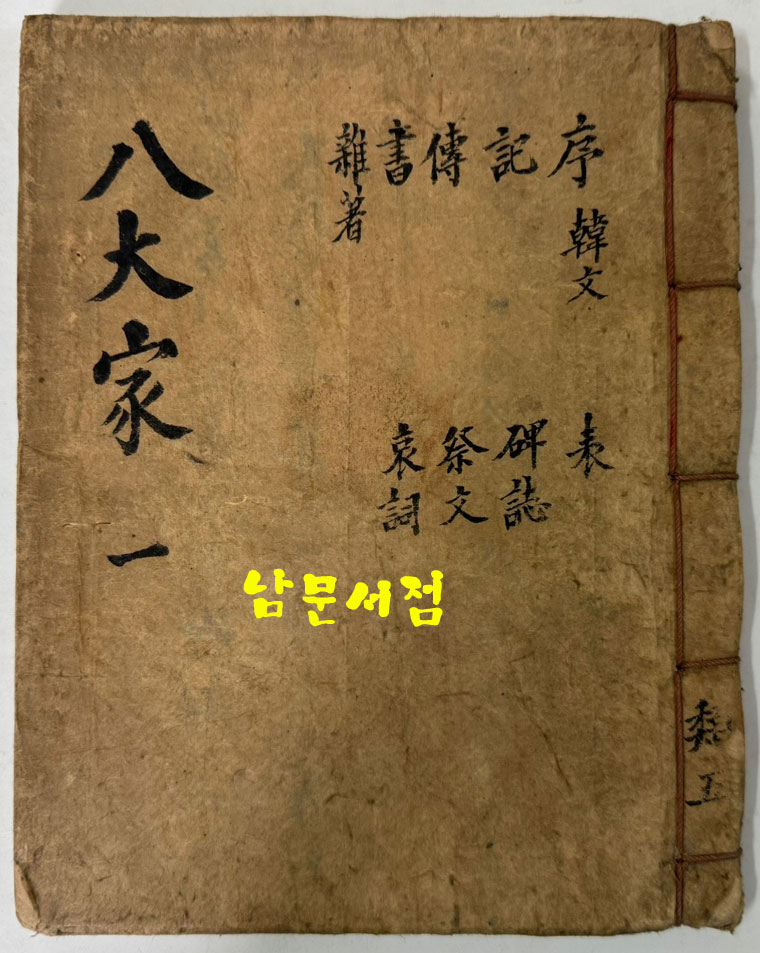 八大家 一
序 韓文
記
傳
書
雜著
表
碑誌
祭文
哀詞
五
남문서점